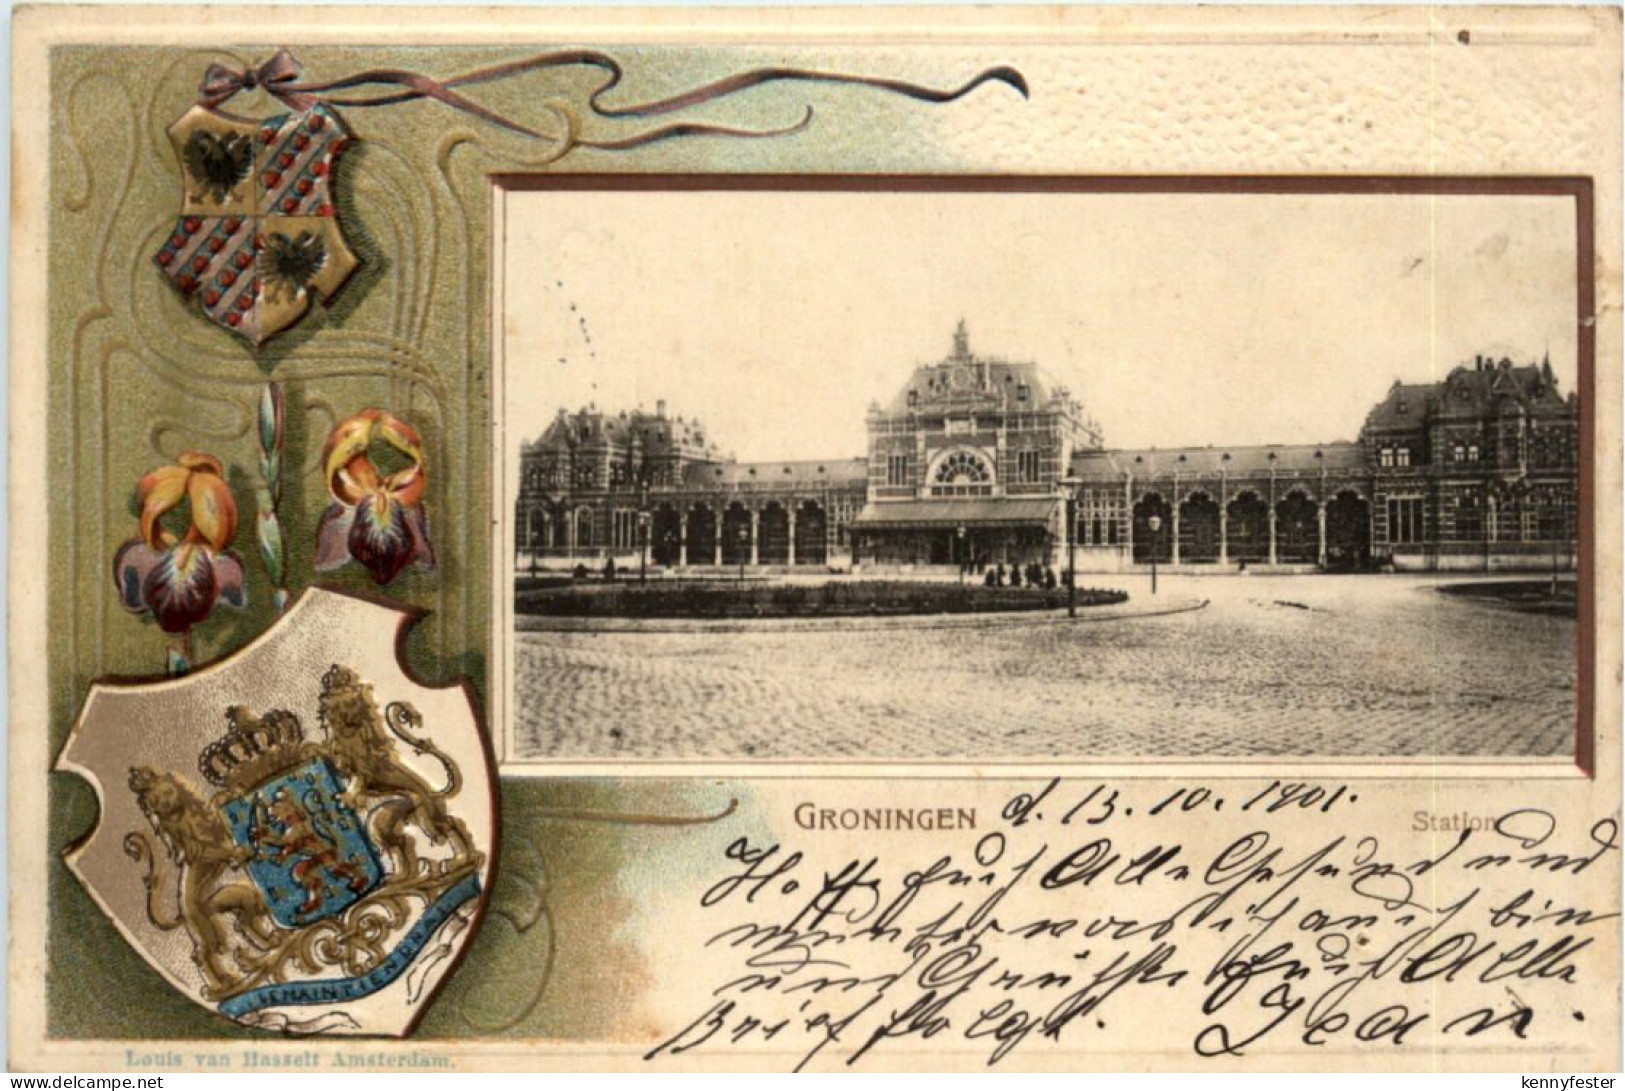 JE MAINTIENDRAI
GRONINGEN d. 13. 10. 1901. Station
Hoffe Euch Alle Gesund und
munter was ich auch bin
und Grüsse Euch Alle
Brief folgt. Jean.
Louis van Hasselt Amsterdam.
kennyfester